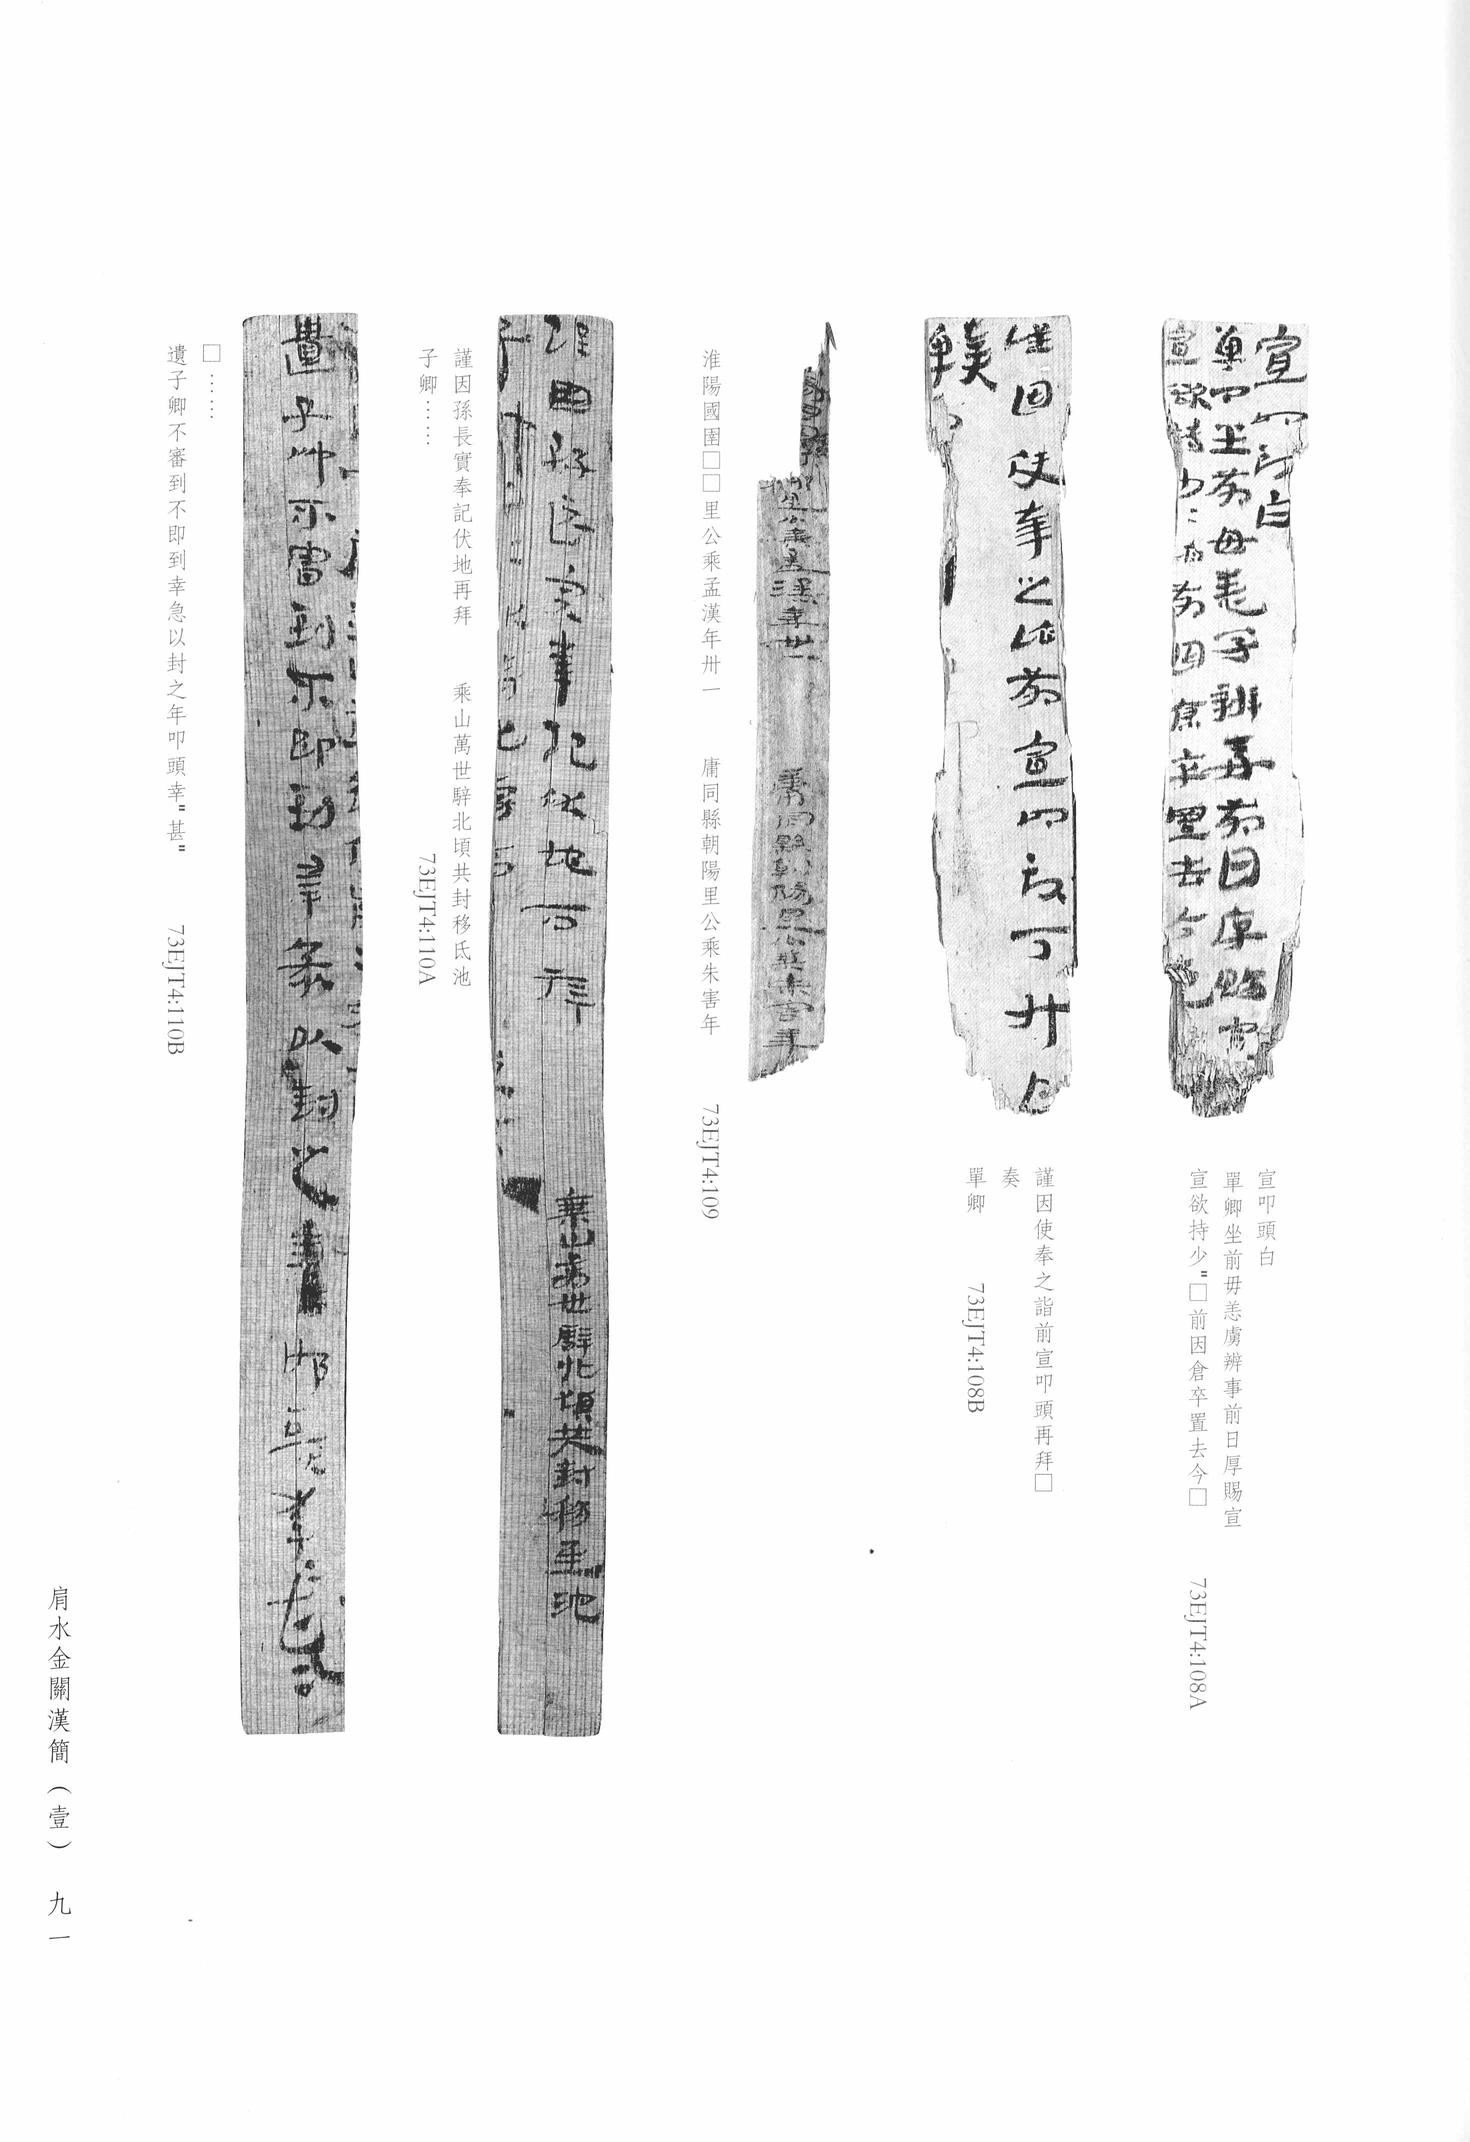 宣叩頭白
單卿坐前毋恙虜辨事前日厚賜宣
宣欲持少〓□前因倉卒置去今□
73EJT4:108A
謹因使奉之詣前宣叩頭再拜□
奏
單卿
73EJT4:108B
淮陽國圉□□里公乘孟漢年卅一 庸同縣朝陽里公乘朱害年
73EJT4:109
謹因孫長實奉記伏地再拜 乘山萬世騂北頃共封移氐池
子卿……
73EJT4:110A
□……
遺子卿不審到不即到幸急以封之年叩頭幸〓甚〓
73EJT4:110B
肩水金關漢簡（壹） 九一